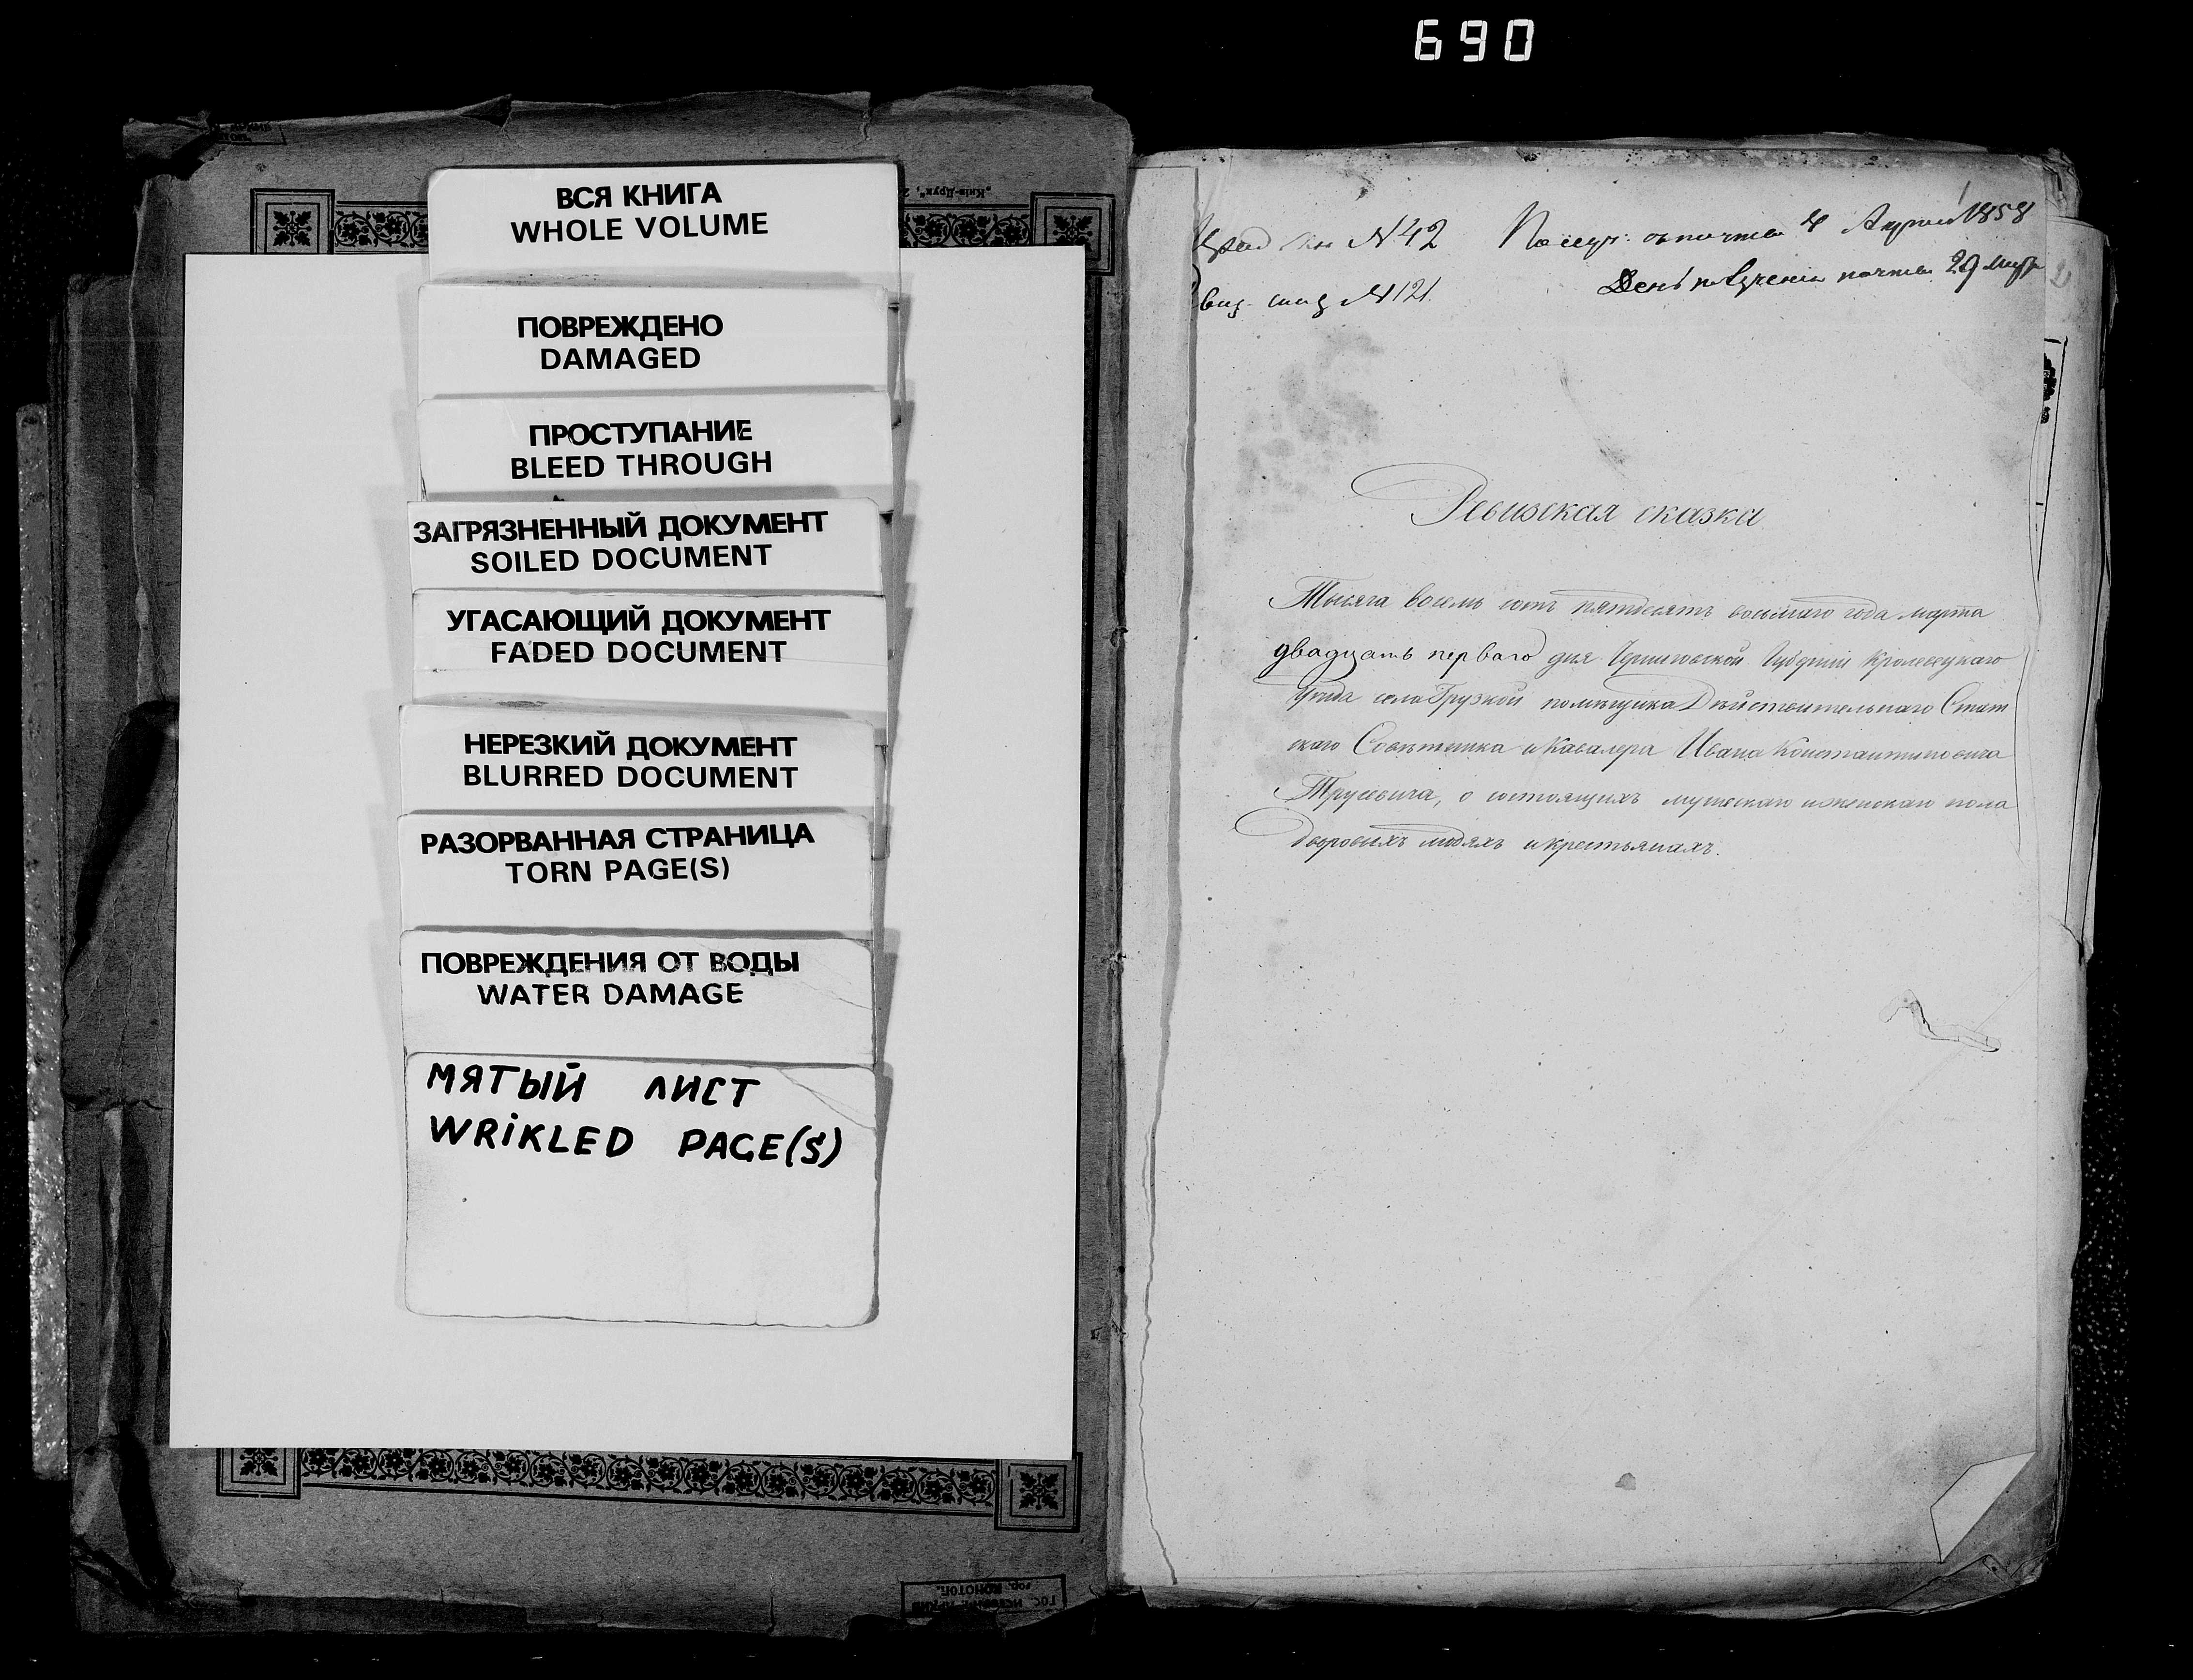 690
ВСЯ КНИГА
WHOLE VOLUME
ПОВРЕЖДЕНО
DAMAGED
ПРОСТУПАНИЕ
BLEED THROUGH
ЗАГРЯЗНЕННЫЙ ДОКУМЕНТ
SOILED DOCUMENT
УГАСАЮЩИЙ ДОКУМЕНТ
FADED DOCUMENT
НЕРЕЗКИЙ ДОКУМЕНТ
BLURRED DOCUMENT
РАЗОРВАННАЯ СТРАНИЦА
TORN PAGE(S)
ПОВРЕЖДЕНИЯ ОТ ВОДЫ
WATER DAMAGE
МЯТЫЙ ЛИСТ
WRIKLED PAGE(S)
№ 42 4 1858
№ 121. День полученія 29
Ревизская сказка
Тысяча восемь сотъ пятдесятъ восьмаго года марта
двадцать перваго дня Черниговской Губерніи Кролевецкаго
уезда села Грузкой помѣщика Дѣйствительнаго Стат
скаго Совѣтника и Кавалера Ивана Константиновича
Трусевича, о состоящихъ мужескаго и женскаго пола
дворовыхъ людяхъ и крестьянахъ.